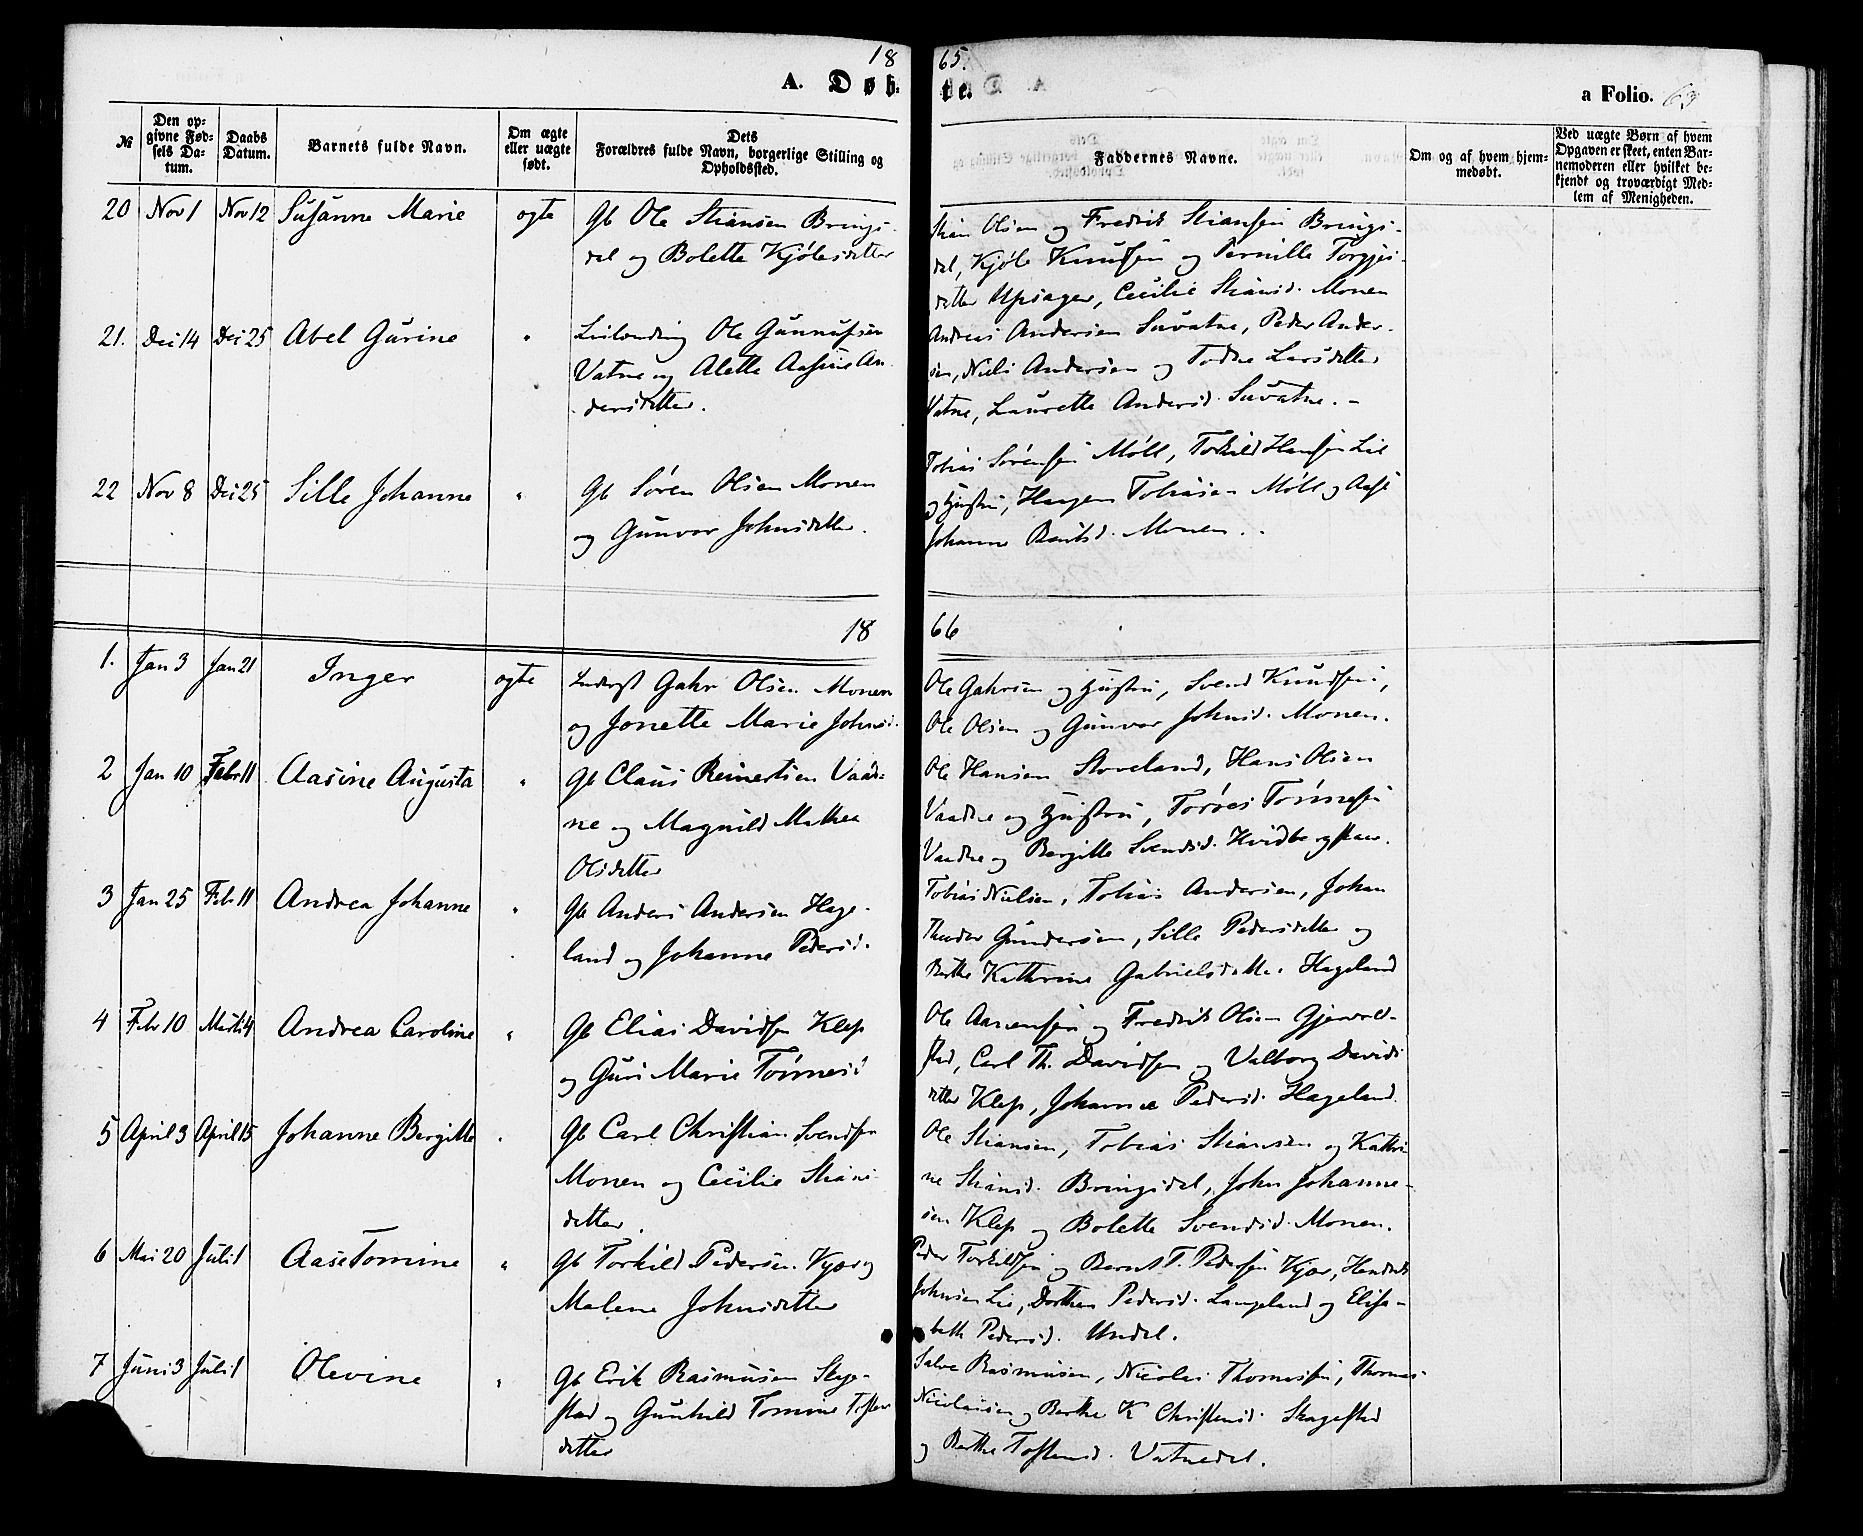 1865.
A. Døbte.
a Folio. 63
№
Den opgivne Fødsels Datum.
Daabs Datum.
Barnets fulde Navn.
Om ægte eller uægte født.
Dets Forældres fulde Navn, borgerlige Stilling og Opholdssted.
Faddernes Navne.
Om og af hvem hjemmedøbt.
Ved uægte Børn af hvem Opgaven er skeet, enten Barnemoderen eller hvilket bekjendt og troværdigt Medlem af Menigheden.
20 Nov 1 Nov 12 Susanne Marie ægte Gb Ole Stiansen Brings-
dal og Bolette Kjølesdatter
Stian Olsen og Fredrik Stiansen Brings-
dal, Kjøle Knutsen og Pernille Torgjes-
datter Upsager, Cecilie Stiansd. Monen
21. Dec 14 Dec 25 Abel Gurine " Leilending Ole Gunnufsen
Vatne og Alette Aasine An-
dersdatter.
Andreas Andersen Suvatne, Peder Ander-
sen, Niels Andersen og Todne Larsdatter
Vatne, Laurette Andersd. Suvatne. -
22 Nov 8 Dec 25 Sille Johanne " Gb Søren Olsen Monen
og Gunvor Johnsdatter.
Tobias Sørensen Møll, Torkild Hansen Lie
og Hustru, Haagen Tobiasen Møll og Aase
Johanne Berntsd. Monen.
1866
1. Jan 3 Jan 21 Inger ægte Inderst Gahr Olsen Monen
og Jonette Marie Johnsd.
Ole Gahrsen og Hustru, Svend Knudsen,
Ole Olsen og Gunvor Johnsd. Monen.
2 Jan 10 Febr 11 Aasine Augusta " Gb Claus Reinertsen Vaad-
ne og Magnild Mathea
Olsdatter
Ole Hansen Stoveland, Hans Olsen
Vaadne og Hustru, Torøes Tønnesen
Vaadne og Bergitte Svendsd. Hvidbergskaar.
3 Jan 25 Febr 11 Andrea Johanne " Gb Anders Andersen Hage-
land og Johanne Pedersd.
Tobias Nielsen, Tobias Andersen, Johan
Theodor Gundersen, Sille Pedersdatter og
Berthe Kathrine Gabrielsdatter Hageland
4 Febr 10 Marts 4 Andrea Caroline " Gb Elias Davidsen Klep
og Guri Marie Tønnesd
Ole Aanensen og Fredrik Olsen Gjervold-
stad, Carl Th. Davidsen og Valborg Davids
datter Klep, Johanne Pedersd. Hageland.
5 April 3 April 15 Johanne Bergitte " Gb Carl Christian Svendsen
Monen og Cecilie Stians
datter.
Ole Stiansen, Tobias Stiansen og Kathri-
ne Stiansd. Bringsdal, John Johanne-
sen Klep og Bolette Svendsd. Monen.
6 Mai 20 Juli 1 Aase Tomine " Gb Torkild Pedersen Kjær og
Malene Johnsdatter
Peder Torkildsen og Bernt T. Pedersen Kjær, Hendrik
Johnsen Lie, Dorthea Pedersd. Langeland og Elisa-
beth Pedersd. Undal.
7 Juni 3 Juli 1 Olevine " Gb Erik Rasmusen Skage-
stad og Gunhild Tomine Tosten
datter
Salve Rasmusen, Nicolai Thomassen, Thomas
Nicolaisen og Berthe K Christensd. Skagestad
og Berthe Tostensd. Vatnedal.